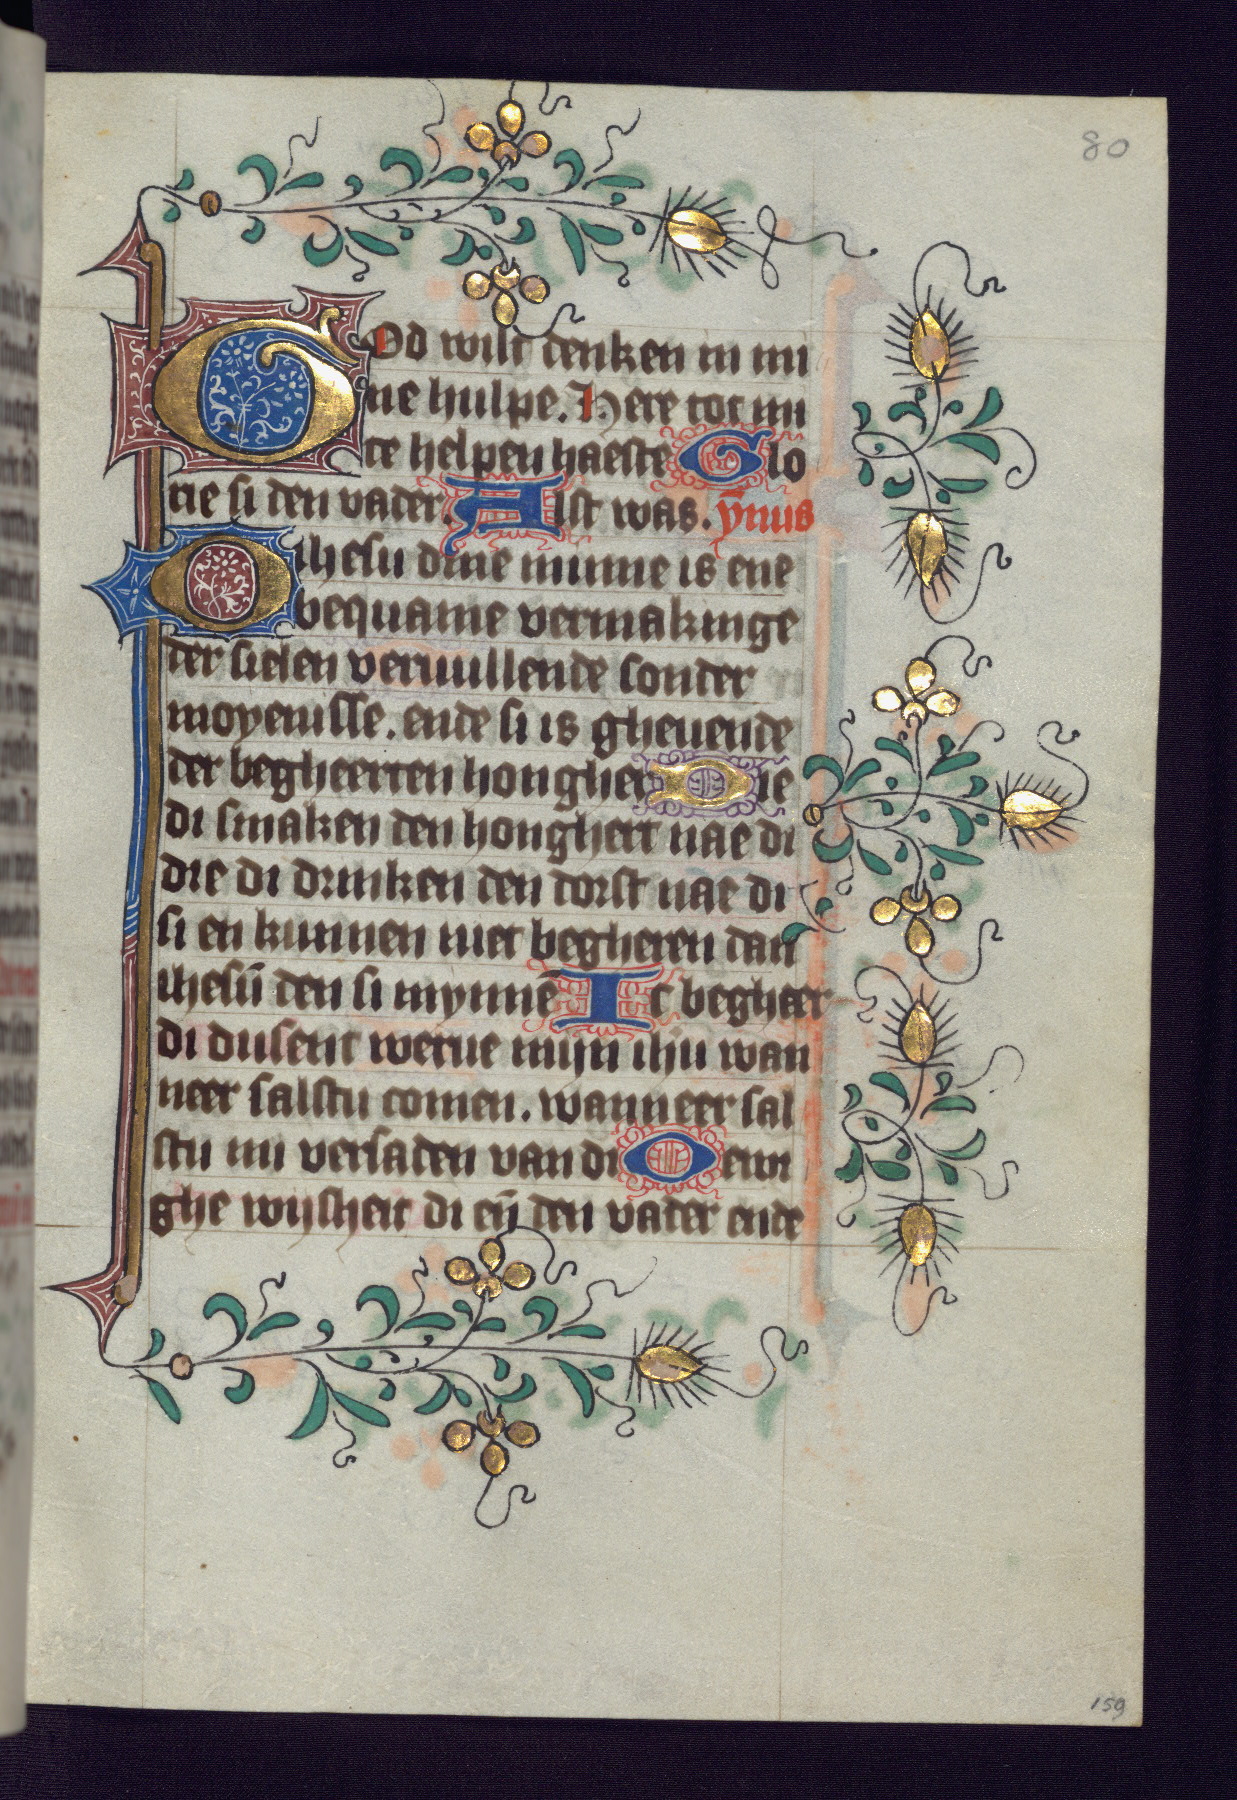 80
God wilt denken in mi
ne hulpe. Here tot mi
te helpen haeste Glo
rie si den vader. Alst was. ȳnus
O ihesu dine minne is ene
bequame vermakinge
der sielen vervullende sonder
moyenisse. ende si is gheuende
der begheerten hongher Die
di smaken den honghert nae di
die di drinken den dorst nae di
si en kunnen niet begheren dan
ihesū den si mynnē Ic begheer
di dusent werue mijn ihu wan
neer salstu comen. wanneer sal
stu mi versaden van di O ewi
ghe wijsheit di en̄ den vader ende
159